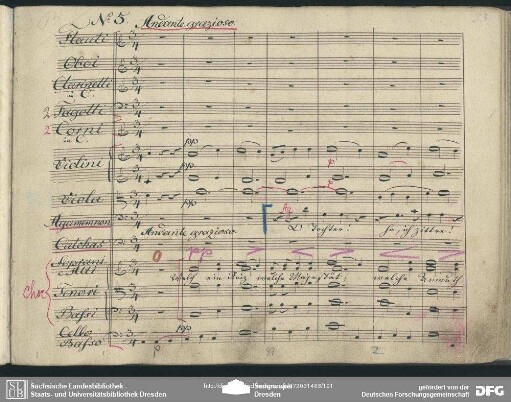 No. 5. Andante grazioso.
Flauti
Oboi
Clarinetti
in C.
2 Fagotti
2 Corni
in C.
Violini
pp
pp
Viola
pp
Agamemnon
O Tochter!
Andante grazioso
Calchas
pp
Soprani
Alti
welche Majestät!
welche Anmuth
Chor
Tenori
Bassi
Cello
Basso
pp
Sächsische Landesbibliothek
Staats- und Universitätsbibliothek Dresden
gefördert von der
Deutschen Forschungsgemeinschaft
DFG